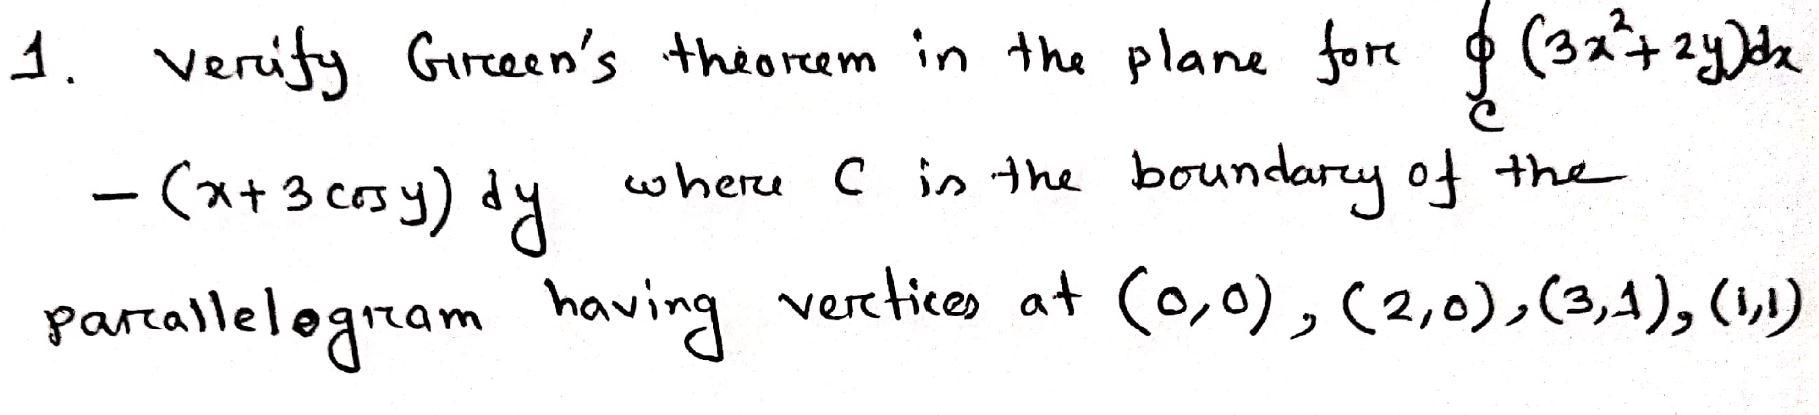 1. Verify Green's theorem in the plane for ∮_C (3x²+2y)dx
- (x+3 cos y) dy where C is the boundary of the
parallelogram having vertices at (0,0), (2,0), (3,1), (1,1)